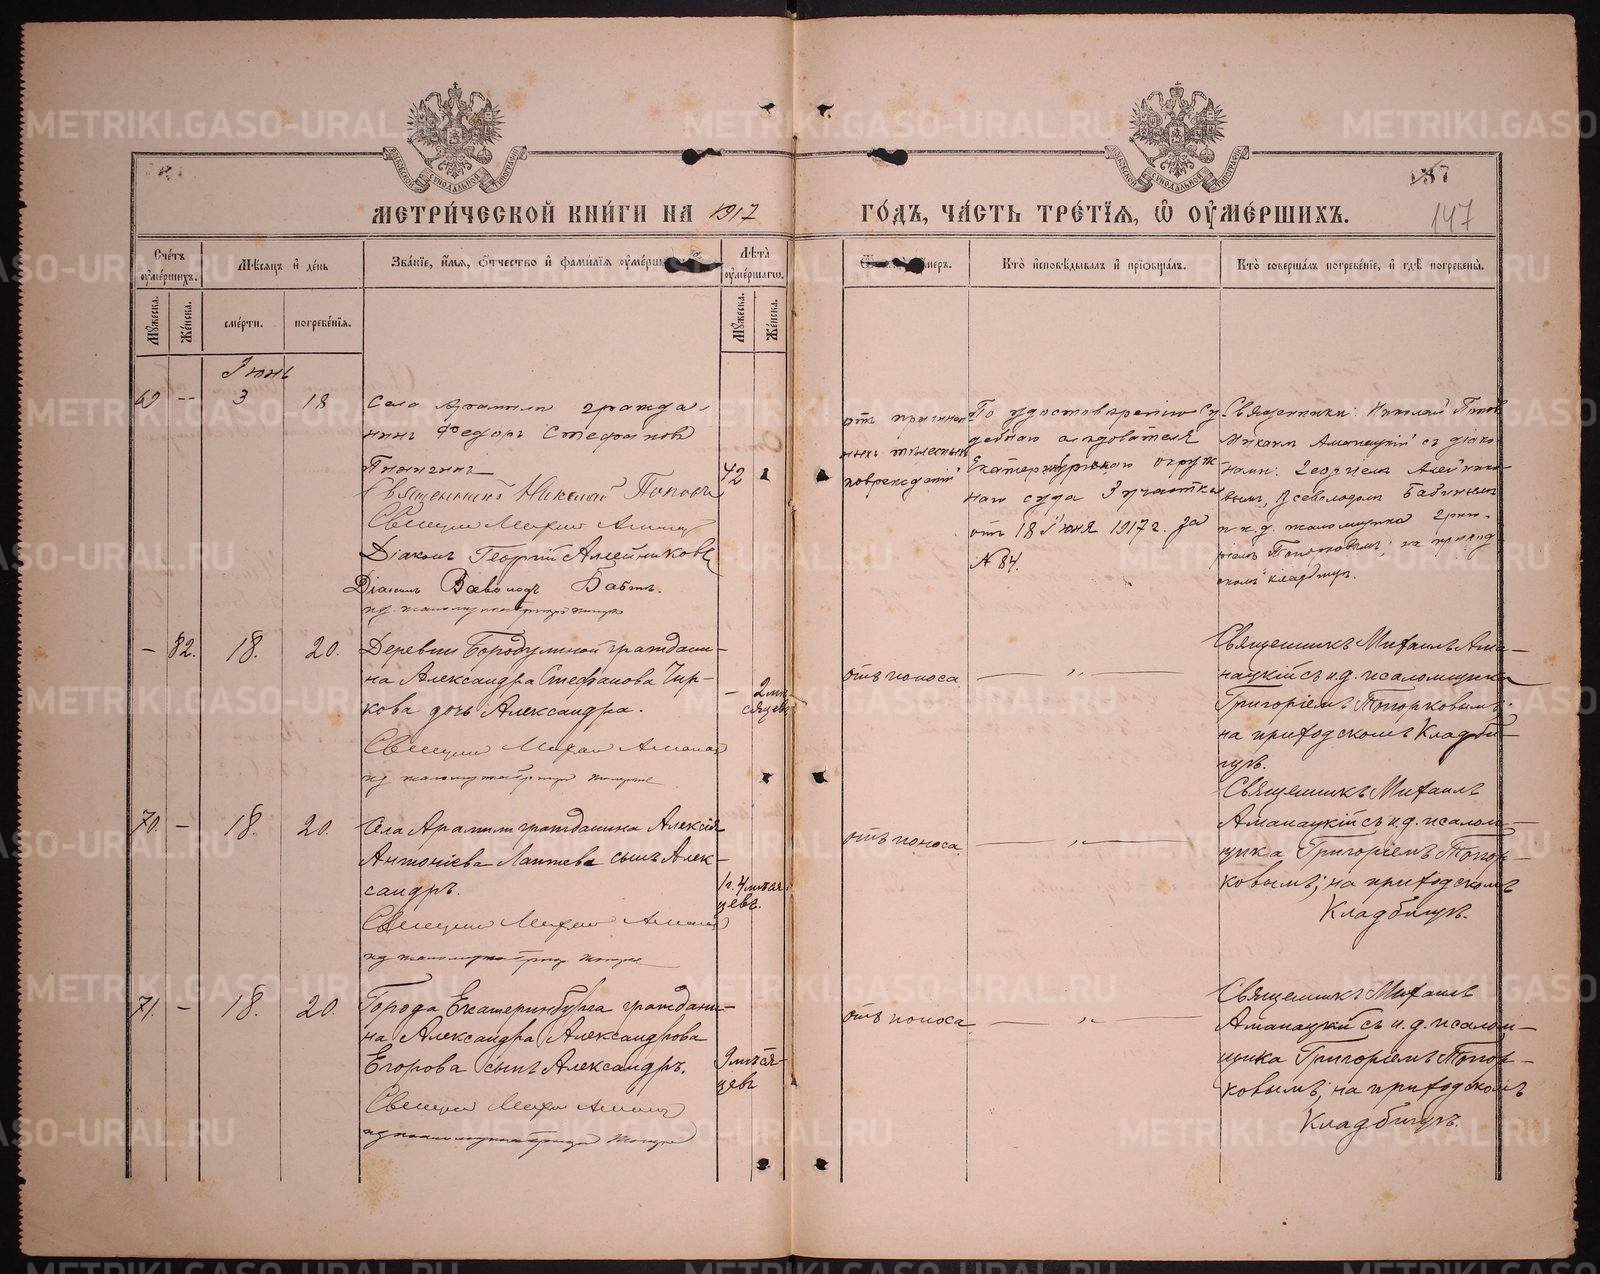 МЕТРИ́ЧЕСКОЙ КНИ́ГИ НА 1917 ГО́ДЪ, ЧА́СТЬ ТРЕ́ТІѦ, Ѿ ОУМЕ́РШИХЪ.
147
Сче́тъ оуме́ршихъ.
Мѣ́сяцъ и де́нь
Зва́нїе, и́мя, о́тчество и фами́лїя
Лѣ́та оуме́ршаго.
Кто̀ исповѣ́дывалъ и прїобща́лъ.
Кто̀ соверша́лъ погребе́нїе, и гдѣ̀ погребены̀.
Мꙋ́жеска.
Же́нска.
сме́рти.
погребе́нїя.
Мꙋ́жеска.
Же́нска.
Іюнь
3
18
Села Арамили гражда-
нинъ Федоръ Стефановъ
42
Священникъ Николай Поповъ
Діаконъ Георгій Алейниковъ
Діаконъ Всеволодъ Бабинъ.
повреждений
По удостоверению су-
дебного следователя
Екатеринбургскаго окруж
наго суда 3 участка
отъ 18 Іюня 1917 г. за
№ 84.
Священники: Николай Поповъ
Михаилъ Аманацкій съ діако-
нами: Георгиемъ Алейнико-
вымъ, Всеволодомъ Бабинымъ
и и.д. псаломщика Григо-
ріемъ Топорковымъ; на приход-
скомъ кладбищѣ.
–
82.
18.
20.
Деревни Бородулиной граждани-
на Александра Стефанова Чир-
кова дочь Александра.
–
2 мѣ-
сяцевъ
отъ поноса
Священникъ Михаилъ Ама-
нацкій съ и.д. псаломщика
Григоріемъ Топорковымъ;
на приходскомъ кладби-
щѣ.
70.
–
18.
20.
Села Арамили гражданина Алексія
Антоніева Лаптева сынъ Алек-
сандръ.
1 г. 4 мѣся-
цевъ.
отъ поноса
Священникъ Михаилъ
Аманацкій съ и.д. псалом-
щика Григоріемъ Топор-
ковымъ; на приходскомъ
кладбищѣ.
71.
–
18.
20.
Города Екатеринбурга граждани-
на Александра Александрова
Егорова сынъ Александръ.
9 мѣся-
цевъ
отъ поноса
Священникъ Михаилъ
Аманацкій съ и.д. псалом-
щика Григоріемъ Топор-
ковымъ; на приходскомъ
кладбищѣ.
METRIKI.GASO-URAL.RU